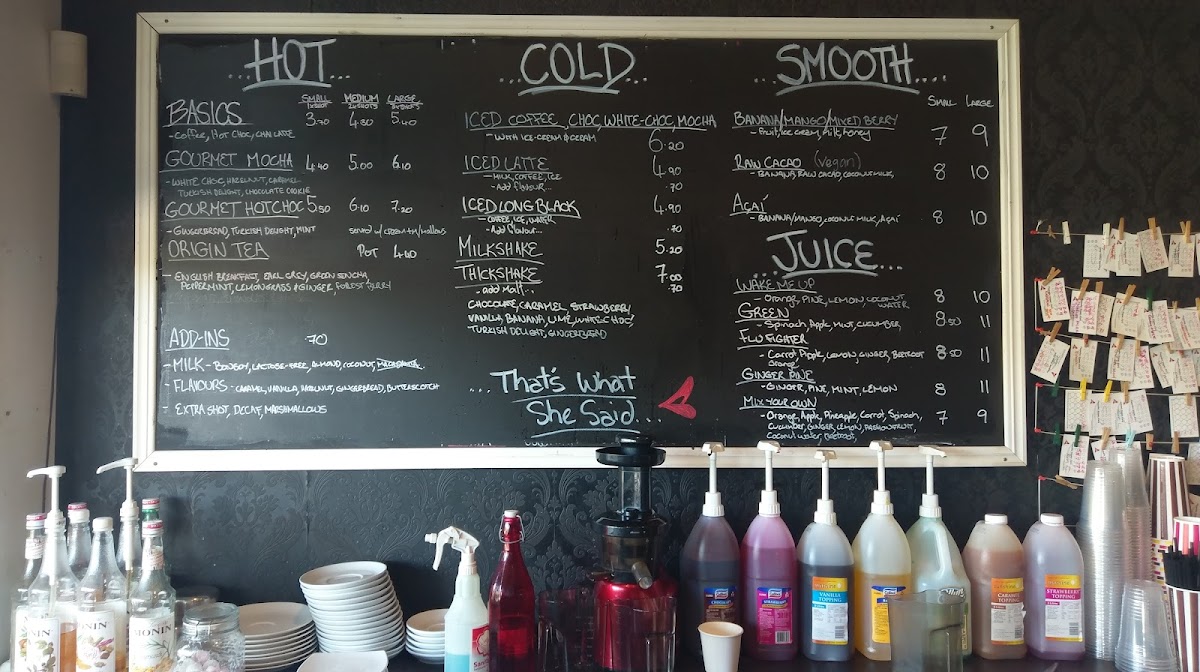 ...HOT...
SMALL MEDIUM LARGE
1x SHOT 2x SHOTS 3x SHOTS
BASICS 3.70 4.30 5.40
- Coffee, Hot Choc, Chai Latte
GOURMET MOCHA 4.40 5.00 6.10
- WHITE CHOC, HAZELNUT, CARAMEL
TURKISH DELIGHT, CHOCOLATE COOKIE
GOURMET HOTCHOC 5.50 6.10 7.20
- GINGERBREAD, TURKISH DELIGHT, MINT
served w/ cream +m/mallows
ORIGIN TEA POT
- ENGLISH BREAKFAST, EARL GREY, GREEN SENCHA,
PEPPERMINT, LEMONGRASS & GINGER, FOREST BERRY
ADD-INS .70
- MILK - BONSOY, LACTOSE-FREE, ALMOND, COCONUT, MACADAMIA
- FLAVOURS - CARAMEL, VANILLA, HAZELNUT, GINGERBREAD, BUTTERSCOTCH
- EXTRA SHOT, DECAF, MARSHMALLOWS
...COLD...
ICED COFFEE, CHOC, WHITE-CHOC, MOCHA
- WITH ICE-CREAM & CREAM 6.20
ICED LATTE 4.90
- MILK, COFFEE, ICE
- Add flavour... .70
ICED LONG BLACK 4.90
- COFFEE, ICE, WATER
- Add flavour... .70
MILKSHAKE 5.20
THICKSHAKE 7.00
- add Malt... .70
CHOCOLATE, CARAMEL, STRAWBERRY
VANILLA, BANANA, LIME, WHITE CHOC,
TURKISH DELIGHT, GINGERBREAD
...That's What
She Said...
...SMOOTH....
SMALL LARGE
BANANA/MANGO/MIXED BERRY 7 9
- Fruit, ice cream, milk, honey
RAW CACAO (vegan) 8 10
- BANANA, RAW CACAO, COCONUT MILK,
Açaí 8 10
- BANANA/MANGO, COCONUT MILK, AÇAÍ
...JUICE...
WAKE ME UP 8 10
- Orange, PINE, LEMON, COCONUT
WATER
GREEN 8.50 11
- Spinach, Apple, Mint, CUCUMBER
FLU FIGHTER 8.50 11
- Carrot, Apple, LEMON, GINGER, BEETROOT
Orange
GINGER PINE 8 11
- GINGER, PINE, MINT, LEMON
MIX YOUR OWN 7 9
- Orange, Apple, Pineapple, Carrot, Spinach,
CUCUMBER, GINGER, LEMON, PASSIONFRUIT,
Coconut water, Beetroot
MONIN
MONIN
MONIN
CARAMEL
TOPPING
STRAWBERRY
TOPPING
VANILLA
TOPPING